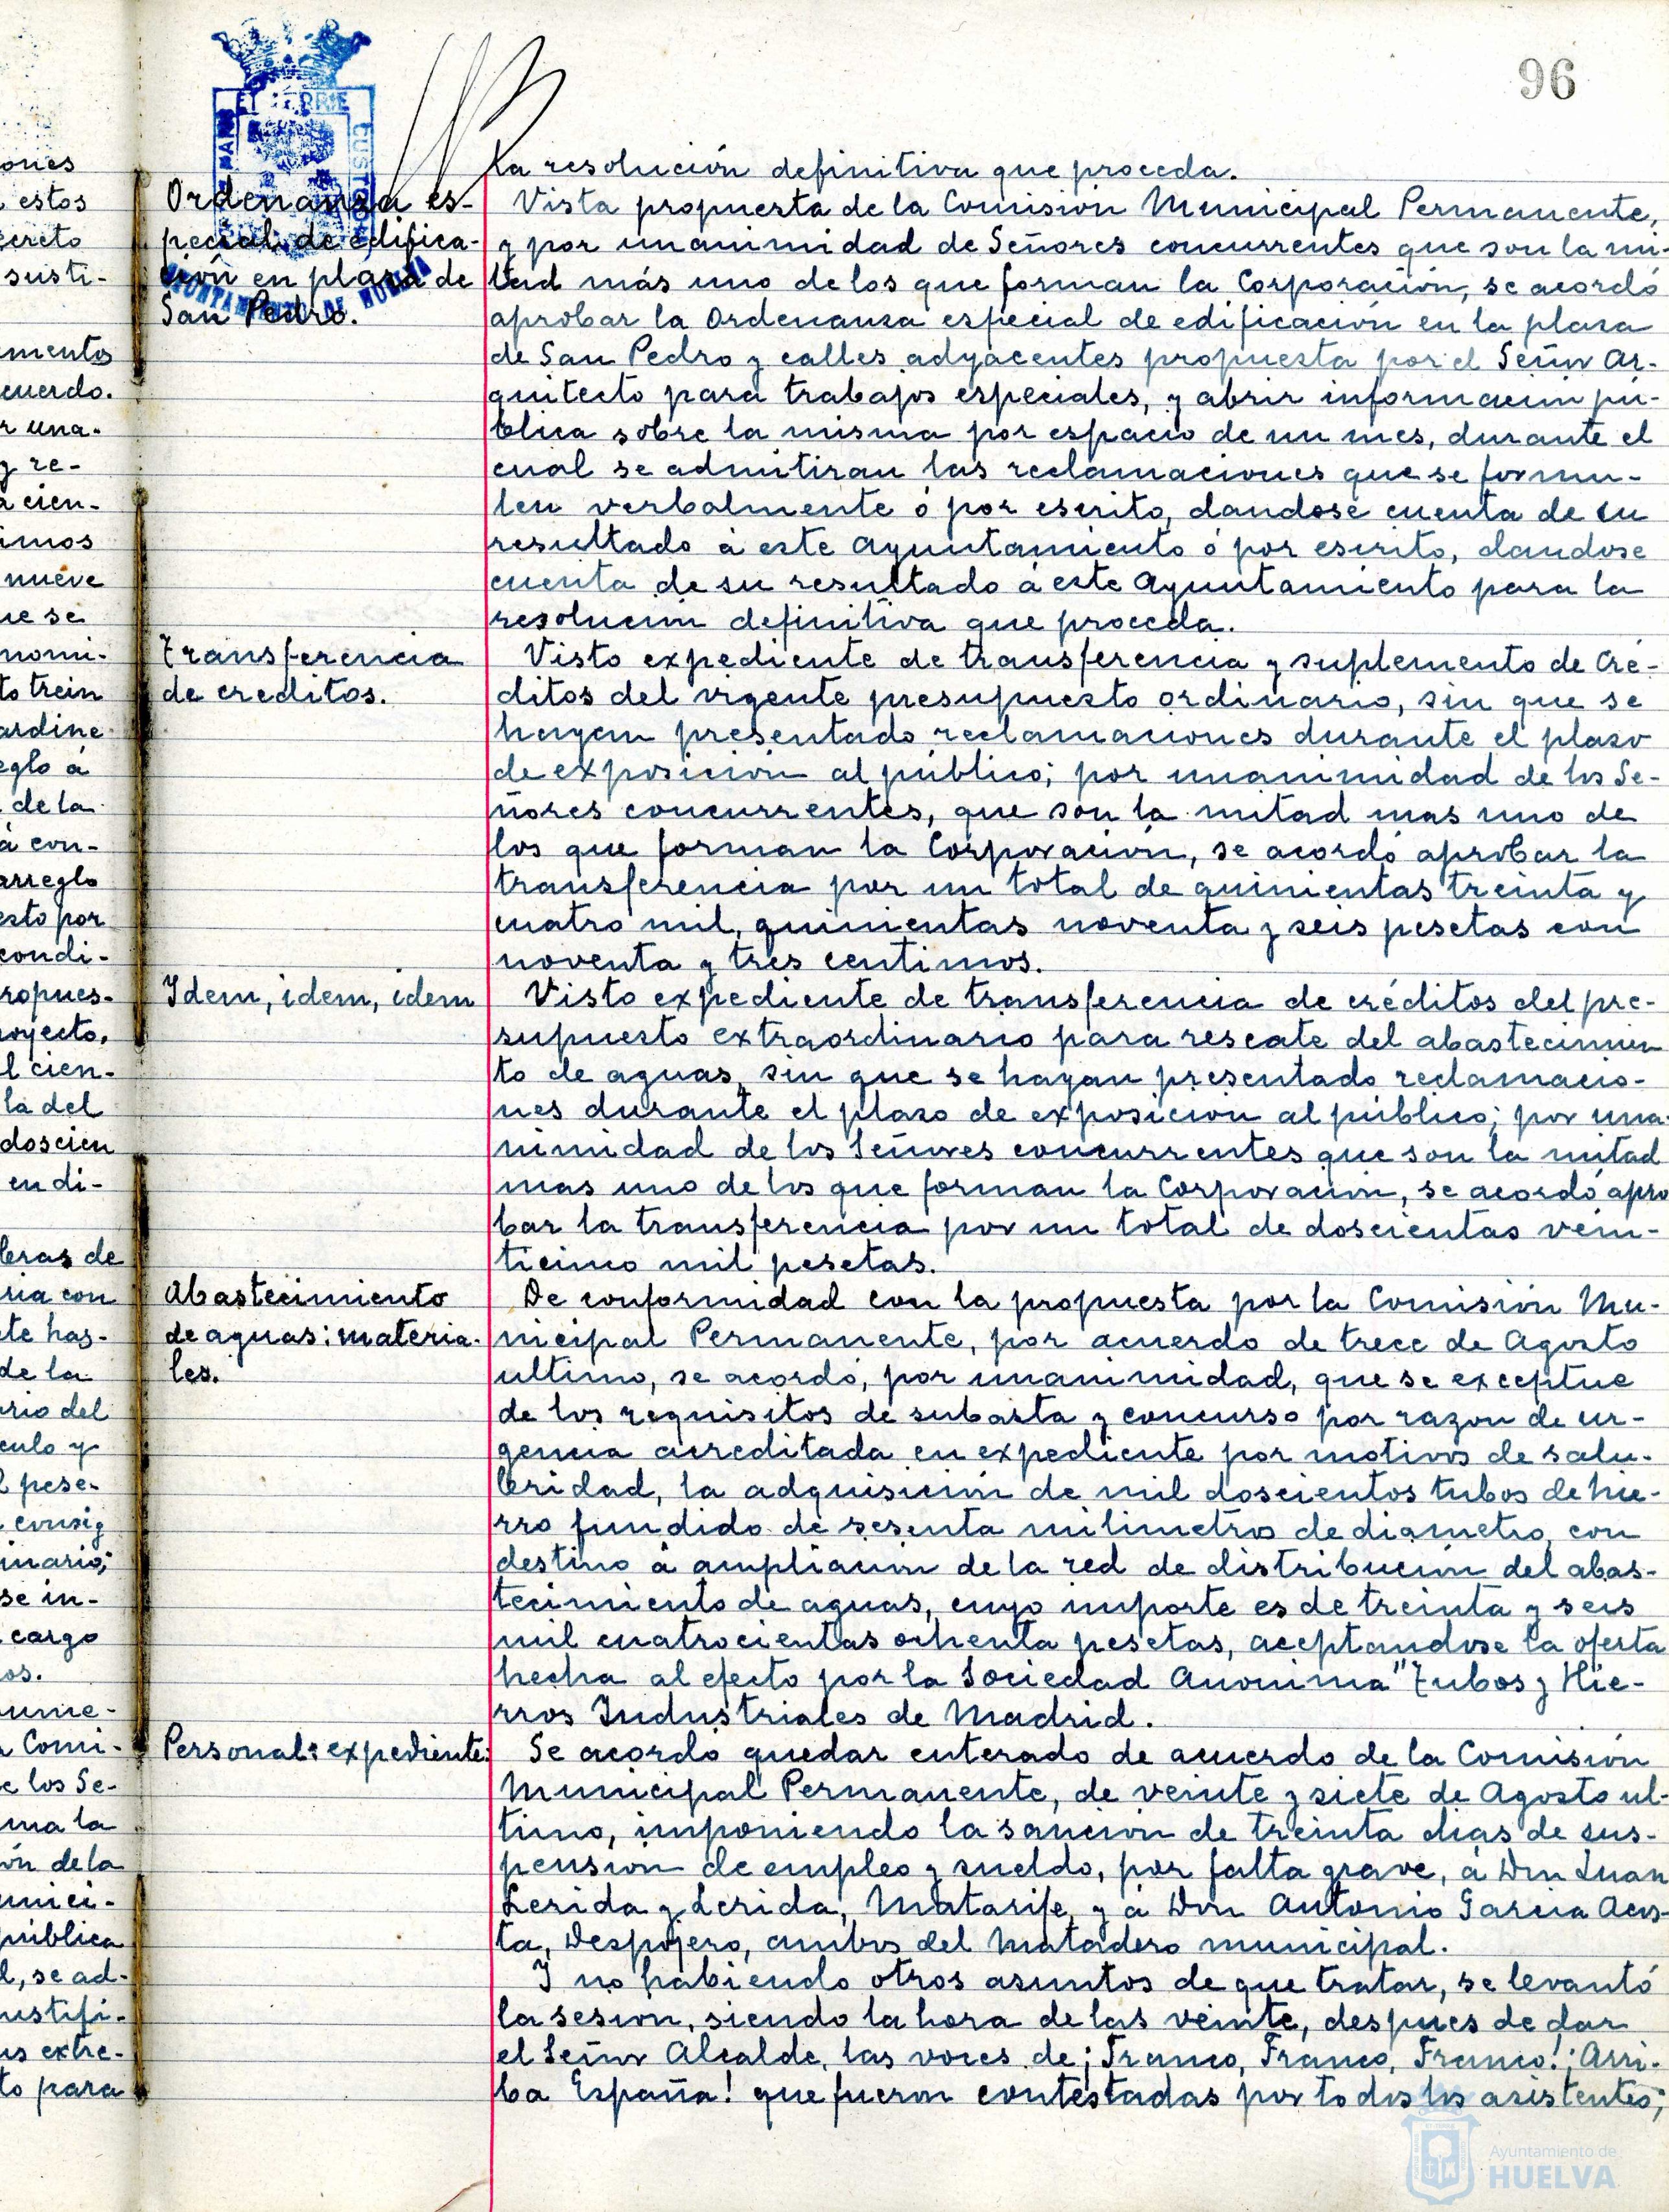 96
la resolución definitiva que proceda.
Ordenanza es-
pecial de edifica-
ción en plaza de
San Pedro.
Vista propuesta de la Comisión Municipal Permanente,
y por unanimidad de Señores concurrentes que son la mi-
tad más uno de los que forman la Corporación, se acordó
aprobar la Ordenanza especial de edificación en la plaza
de San Pedro y calles adyacentes propuesta por el Señor Ar-
quitecto para trabajos especiales, y abrir información pú-
blica sobre la misma por espacio de un mes, durante el
cual se admitiran las reclamaciones que se formu-
len verbalmente ó por escrito, dandose cuenta de su
resultado á este Ayuntamiento ó por escrito, dandose
cuenta de su resultado á este Ayuntamiento para la
resolución definitiva que proceda.
Transferencia
de creditos.
Visto expediente de transferencia y suplemento de Cré-
ditos del vigente presupuesto ordinario, sin que se
hayan presentado reclamaciones durante el plazo
de exposición al público; por unanimidad de los Se-
ñores concurrentes, que son la mitad mas uno de
los que forman la Corporación, se acordó aprobar la
transferencia por un total de quinientas treinta y
cuatro mil, quinientas noventa y seis pesetas con
noventa y tres centimos.
Idem, idem, idem
Visto expediente de transferencia de créditos del pre-
supuesto extraordinario para rescate del abastecimien
to de aguas, sin que se hayan presentado reclamacio-
nes durante el plazo de exposición al público; por una-
nimidad de los Señores concurrentes que son la mitad
mas uno de los que forman la Corporación, se acordó apro
bar la transferencia por un total de doscientas vein-
ticinco mil pesetas.
Abastecimiento
de aguas: materia-
les.
De conformidad con la propuesta por la Comisión Mu-
nicipal Permanente, por acuerdo de trece de Agosto
ultimo, se acordó, por unanimidad, que se exceptue
de los requisitos de subasta y concurso por razon de ur-
gencia acreditada en expediente por motivos de salu-
bridad, la adquisición de mil doscientos tubos de hie-
rro fundido de sesenta milimetros de diametro, con
destino á ampliación de la red de distribución del abas-
tecimiento de aguas, cuyo importe es de treinta y seis
mil cuatrocientas ochenta pesetas, aceptandose la oferta
hecha al efecto por la Sociedad Anonima "Tubos y Hie-
rros Industriales de Madrid.
Personal: expediente.
Se acordo quedar enterado de acuerdo de la Comisión
Municipal Permanente, de veinte y siete de Agosto ul-
timo, imponiendo la sanción de treinta dias de sus-
pensión de empleo y sueldo, por falta grave, á Don Juan
Lerida y Lerida, Matarife, y á Don Antonio Garcia Acos-
ta, Despojero, ambos del Matadero municipal.
Y no habiendo otros asuntos de que tratar, se levantó
la sesion, siendo la hora de las veinte, despues de dar
el Señor Alcalde, las voces de ¡Franco, Franco, Franco! ¡Arri-
ba España! que fueron contestadas por todos los asistentes;
Ayuntamiento de
HUELVA